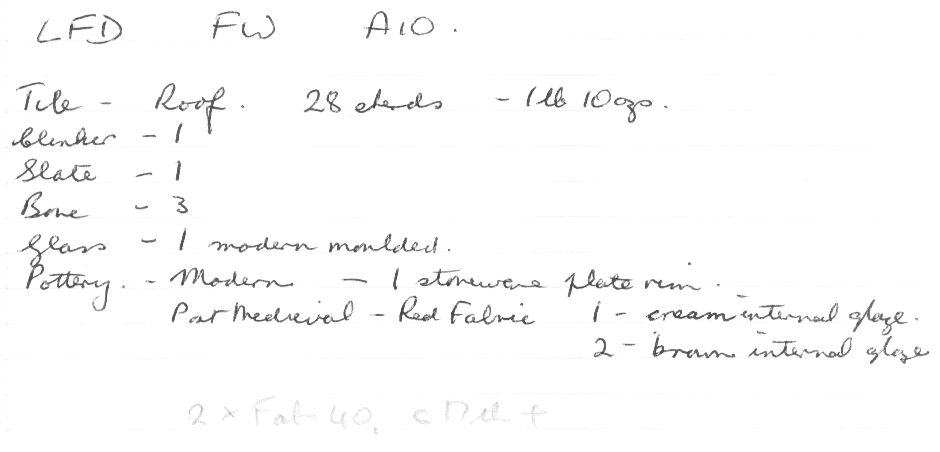 LFD FW A10.
Tile - Roof. 28 sherds - 1 lb 10ozs.
Clinker - 1
Slate - 1
Bone - 3
Glass - 1 modern moulded.
Pottery. - Modern - 1 stoneware plate rim.
Post Medieval - Red Fabric 1 - cream internal glaze.
2 - brown internal glaze
2 x Fab 40, c17th +